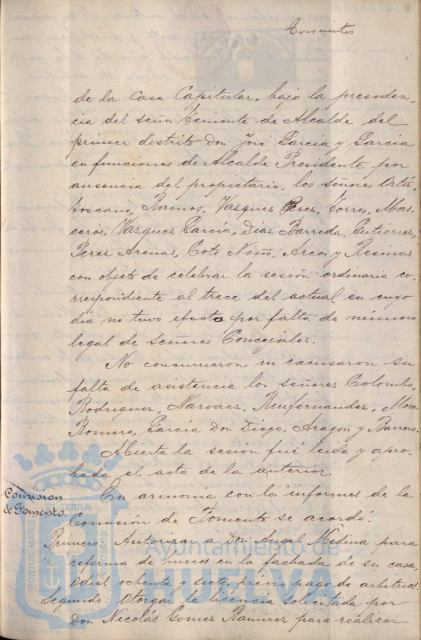 de la Casa Capitular, bajo la presiden-
cia del señor Teniente de Alcalde del
primer distrito Don José García y García
en funciones de Alcalde Presidente por
ausencia del propietario, los señores
toscano, Ramos, Vasques Peres, Torres, Mas-
carós, Vázques García, Díaz Barreda, Gutiérrez,
Peres Arenas, Coto Niño, Arco y Resinas
con objeto de celebrar la sesión ordinaria co-
rrespondiente al trece del actual en cuyo
día no tuvo efecto por falta de número
legal de Señores Concejales.
No concurrieron ni excusaron su
falta de asistencia los señores Colombo,
Rodriguez, Narvaes, Mora
Romero, García Don Diego, Aragón y Barroso
Abierta la sesión fué leída y apro-
bada el acta de la anterior.
Comision
de Fomento.
En armonía con los informes de la
Comisión de Fomento se acordó.
Primero: Autorizar a Don Angel Medina para
reforma de huecos en la fachada de su casa,
Odiel ochenta y siete, previo pago de arbitrios.
Segundo: Otorgar la licencia solicitada por
Don Nicolás Gomez Ramirez para realizar
Ayuntamiento de
HUELVA